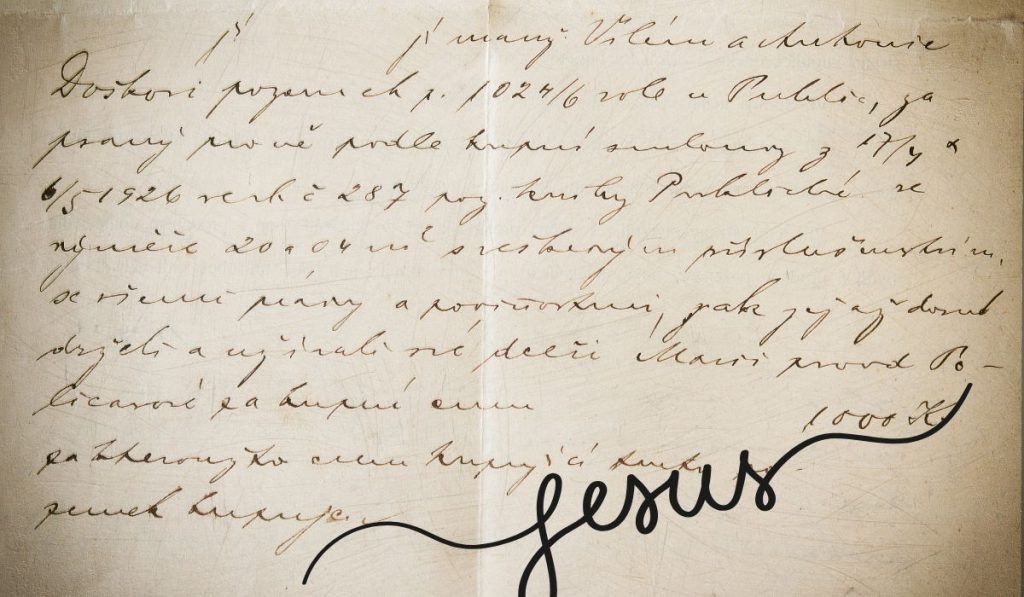 jí manž. Vilém a Antonie
Doškovi pozemek p. 1024/6 role v za
psaný podle kupní smlouvy z 17/4 a
6/5 1926 č 287 poz. knihy ve
výměře 20 a 04 m² s veškerým příslušenstvím,
se všemi právy a povinnostmi, jak jej až dosud
drželi a užívali své dceři Marii provd Po-
licarové za kupní cenu
1000 Kč
za kteroužto cenu kupující tento po-
zemek kupuje.
Jesus